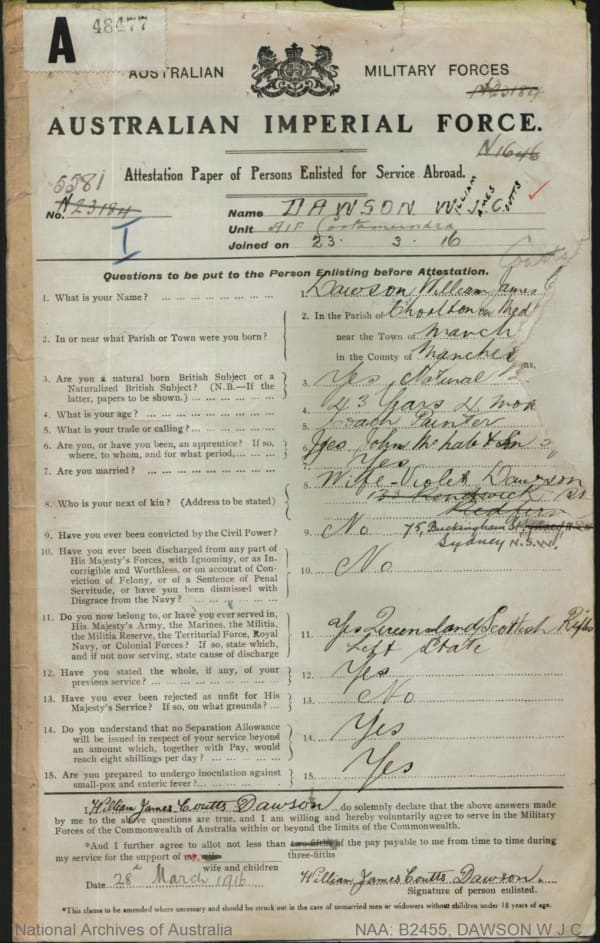 A
48477
AUSTRALIAN MILITARY FORCES
AUSTRALIAN IMPERIAL FORCE.
N1646
Attestation Paper of Persons Enlisted for Service Abroad.
5581
No. N23184
I
Name DAWSON W J. C.
WILLIAM JAMES COUTTS
Unit AIF Cootamundra
Joined on 23. 3. 16
Coutts
Questions to be put to the Person Enlisting before Attestation.
1. What is your Name? ... 1. Dawson William James C
2. In or near what Parish or Town were you born? 2. In the Parish of Chorlton on Med
near the Town of Manch
in the County of Manches
3. Are you a natural born British Subject or a
Naturalized British Subject? (N.B.—If the
latter, papers to be shown.) ... 3. Yes, Natural B
4. What is your age? ... 4. 43 Years 4 mon
5. What is your trade or calling? ... 5. Coach Painter
6. Are you, or have you been, an apprentice? If so,
where, to whom, and for what period, ... 6. Yes John
7. Are you married? ... Yes
8. Who is your next of kin? (Address to be stated) 8. Wife Violet Dawson
133 St
Redfern
75, Buckingham St
Sydney N.S.W.
9. Have you ever been convicted by the Civil Power? 9. No
10. Have you ever been discharged from any part of
His Majesty's Forces, with Ignominy, or as In-
corrigible and Worthless, or on account of Con-
viction of Felony, or of a Sentence of Penal
Servitude, or have you been dismissed with
Disgrace from the Navy? ... 10. No
11. Do you now belong to, or have you ever served in,
His Majesty's Army, the Marines, the Militia,
the Militia Reserve, the Territorial Force, Royal
Navy, or Colonial Forces? If so, state which,
and if not now serving, state cause of discharge 11. Yes Queensland Scottish Rifles
Left State
12. Have you stated the whole, if any, of your
previous service? ... 12. Yes
13. Have you ever been rejected as unfit for His
Majesty's Service? If so, on what grounds? ... 13. No
14. Do you understand that no Separation Allowance
will be issued in respect of your service beyond
an amount which, together with Pay, would
reach eight shillings per day? ... 14. Yes
15. Are you prepared to undergo inoculation against
small-pox and enteric fever? ... 15. Yes
I, William James Coutts Dawson do solemnly declare that the above answers made
by me to the above questions are true, and I am willing and hereby voluntarily agree to serve in the Military
Forces of the Commonwealth of Australia within or beyond the limits of the Commonwealth.
*And I further agree to allot not less than two-fifths of the pay payable to me from time to time during
three-fifths
my service for the support of my wife
wife and children
Date 28th March 1916 William James Coutts Dawson.
Signature of person enlisted.
*This clause to be amended where necessary and should be struck out in the case of unmarried men or widowers without children under 18 years of age.
National Archives of Australia NAA: B2455, DAWSON W J C